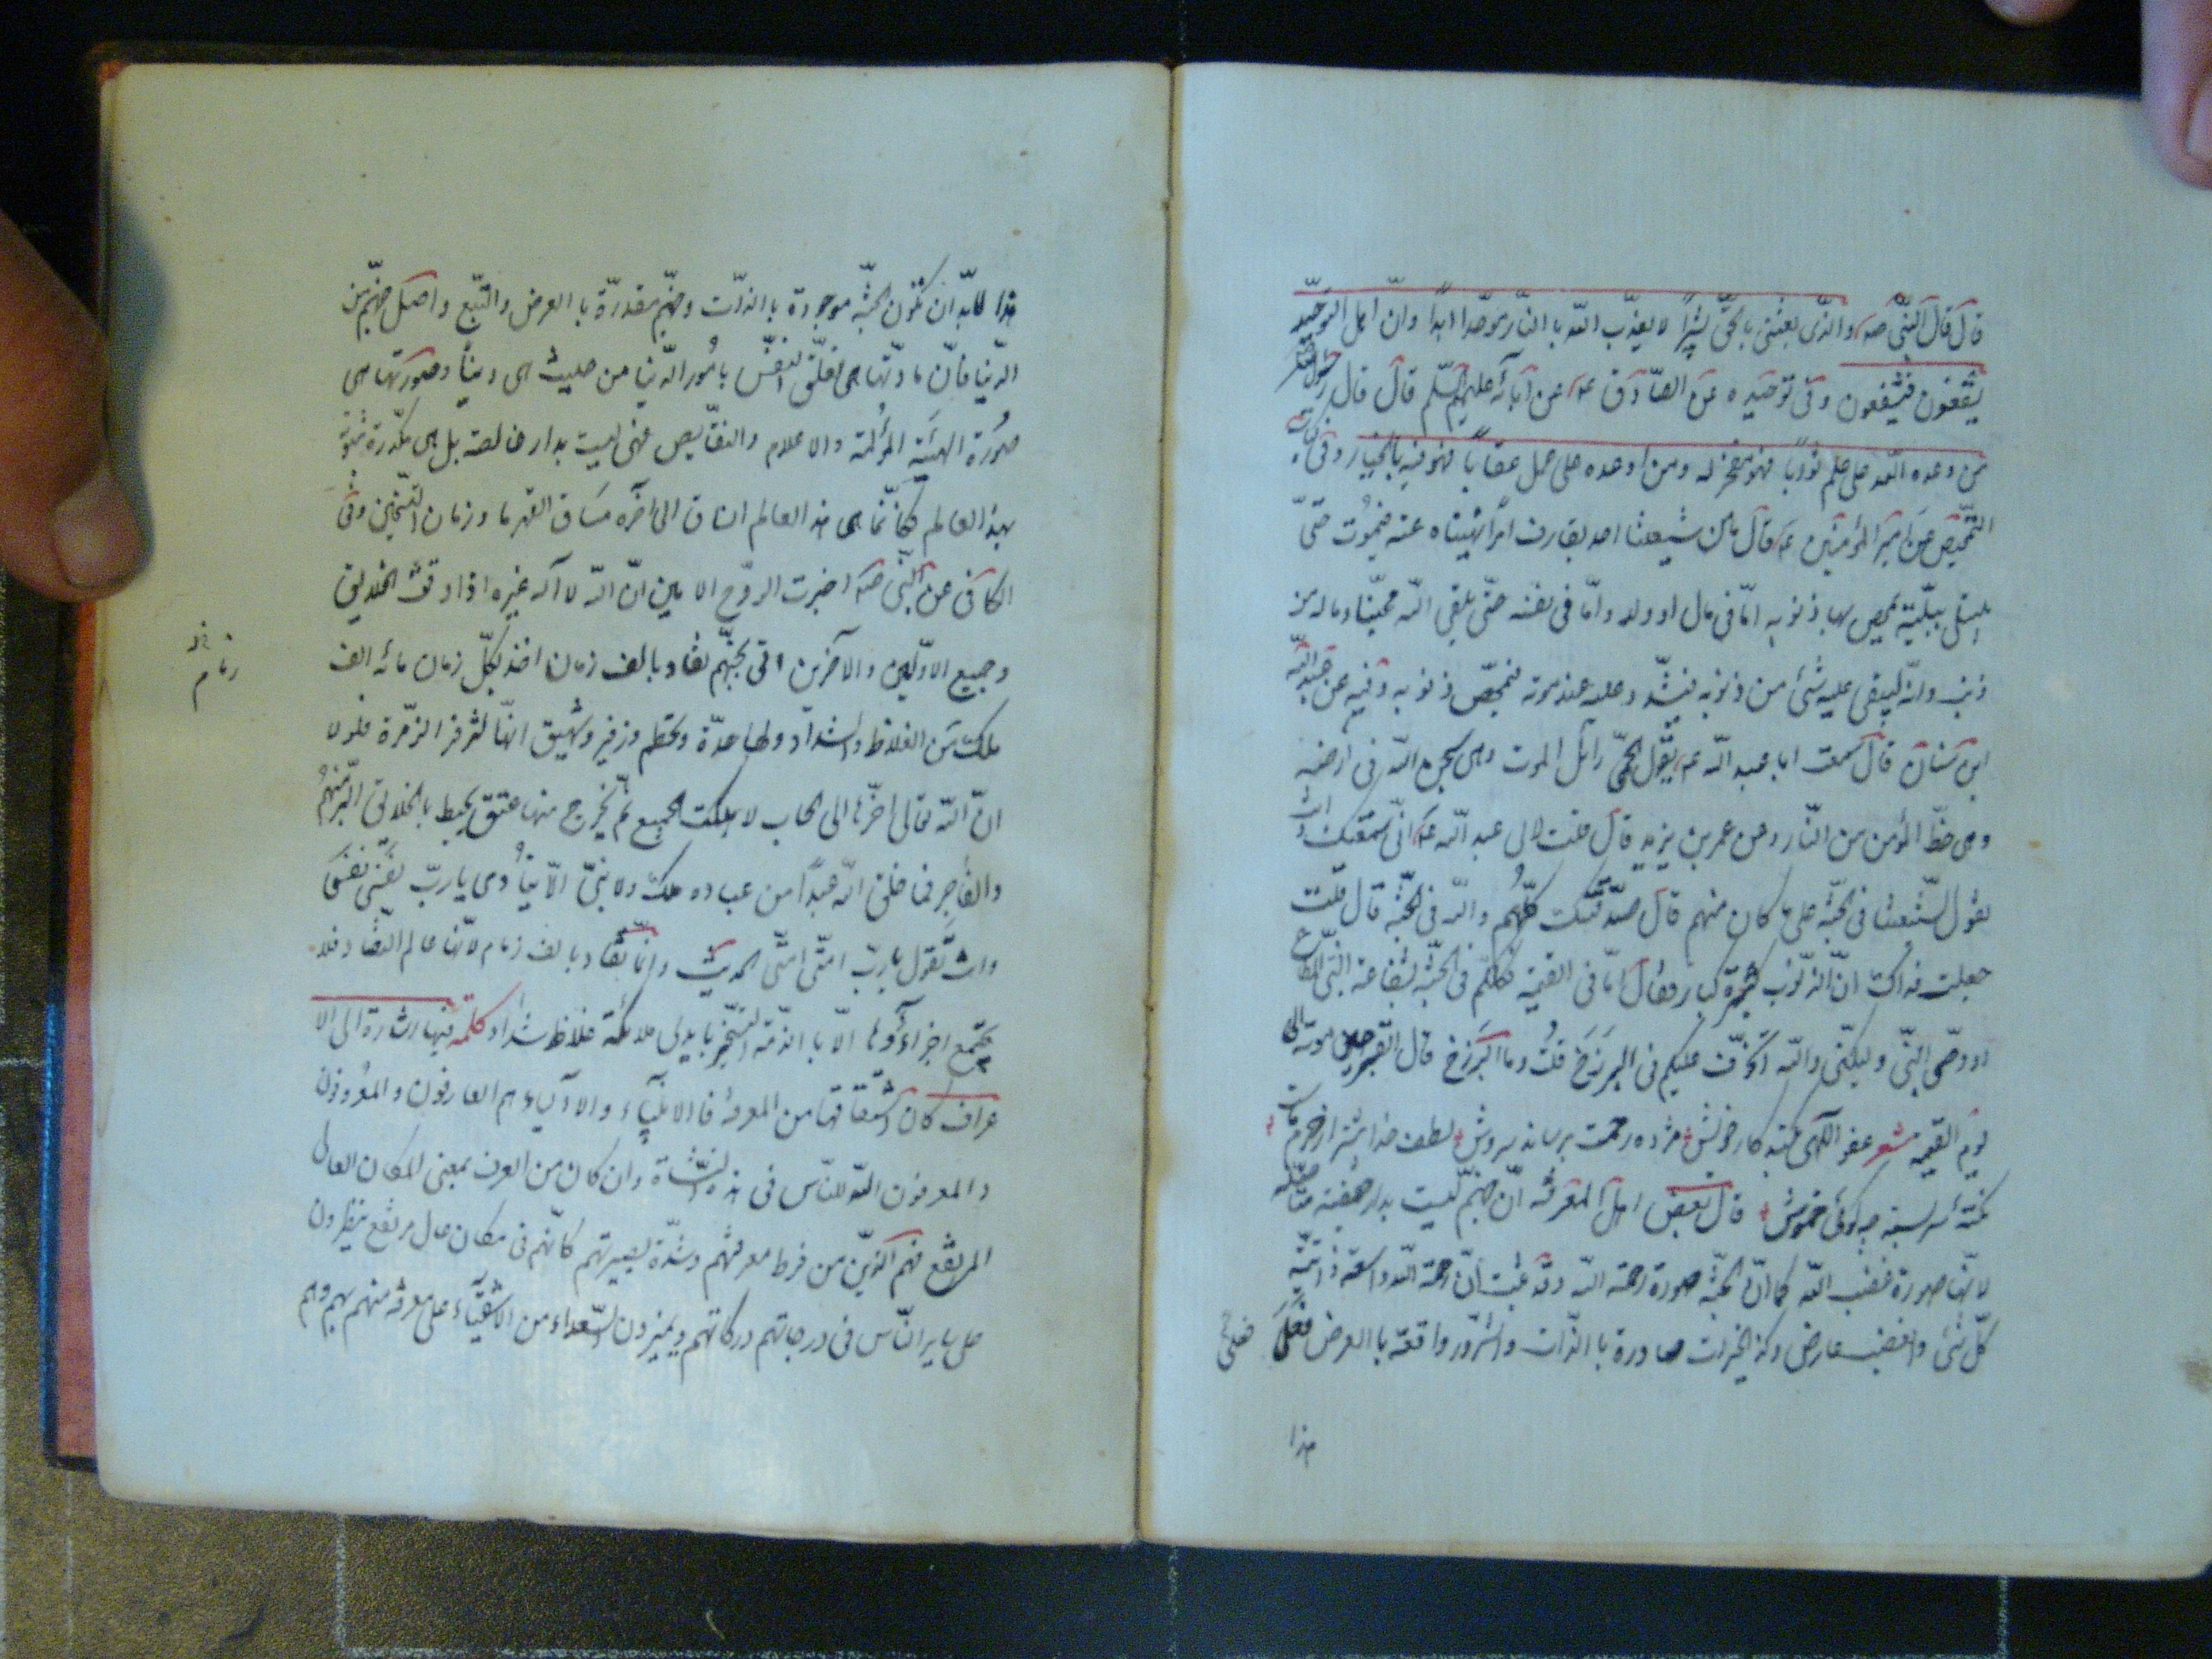 قال قال النبی صم والذی بعثنی بالحق بشیرا لا یعذب الله باالنار موحدا ابدا وان اهل التوحید
یشفعون فیشفعون وفی توحیده عن الصادق عم عن آبائه علیهم السلم قال قال رسول الله
من وعده الله علی عمل ثوابا فهو منجز له ومن اوعده علی عمل عقابا فهو فیه بالخیار وفی
التمحیص عن امیر المؤمنین عم قال ما من شیعتنا احد یقارف امرا نهیناه عنه فیموت حتی
یبتلی ببلیة یمحص بها ذنوبه اما فی مال او ولد واما فی نفسه حتی یلقی الله محبنا وماله من
ذنب وانه لیبقی علیه شئ من ذنوبه فیشدد علیه عند موته فیمحص ذنوبه وفیه عن عبد الله
ابن سنان قال سمعت ابا عبد الله عم یقول الحمی رائد الموت وهی سجن الله فی ارضه
وهی حظ المؤمن من النار وعن عمر بن یزید قال قلت لابی عبد الله عم انی سمعتک وانت
تقول کل شیعتنا فی الجنة علی ما کان منهم قال صدقتک کلهم والله فی الجنة قال قلت
جعلت فداک ان الذنوب کثیرة کبار فقال اما فی القیمة فکلکم فی الجنة بشفاعة النبی المطاع
او وصی النبی ولیکنی والله اتخوف علیکم فی البرزخ قلت وما البرزخ قال القبر حین موته الی
یوم القیمة شعر عفو الهی بکند کار خویش مژده رحمت برساند سروش لطف خدا بیشتر از جرم ماست
نکته سر بسته چه کوئی خموش قال بعض اهل المعرفة ان جهنم لیست بدار حقیقیة متاصلة
لانها صورة غضب الله کما ان الجنة صورة رحمة الله وقد ثبت ان رحمة الله واسعة ذاتیة
کل شئ والغضب عارض وکذا الخیرات صادرة باالذات والشرور واقعة باالعرض فعلی
هذا
هذا لابد ان تکون الجنة موجودة باالذات وجهنم مقدرة باالعرض والتبع واصل جهنم من
الدنیا فان مادتها هی تعلق النفس بامور الدنیا من حیث هی دنیا وصورتها هی
صورة الهیئة المؤلمة والاعدام والنقایص فهی لیست بدار خالصة بل هی مکدرة
بهذا العالم فکانما هی هذا العالم انساق الی الآخرة مساق القهر ما وزمان التسخین وفی
الکافی عن النبی صم اخبرت الروح الامین ان الله لا اله غیره اذا وقف الخلایق
وجمیع الاولین والآخرین اتی بجهنم تقاد بالف زمان اخذ بکل زمان مائة الف
زمام
ملک من الغلاظ والشداد ولها هدة وتحطم وزفیر وشهیق انها لتزفر الزفرة فلولا
ان الله تعالی اخرها الی الحساب لاهلکت الجمیع ثم یخرج منها عنق یحیط بالخلائق البر منهم
والفاجر فما خلق الله عبدا من عباده ملک ولا نبی الا ینادی یا رب نفسی نفسی
وانت تقول یا رب امتی امتی الحدیث وانما تقاد بالف زمام لانها عالم التضاد فلا
یجتمع اجزاؤها الا با الازمة لتسخیر بایدی ملائکة غلاظ شداد کلمة فیها اشارة الی الا
عراف کان اشتقاقها من المعرفة فالانبیاء والاولیاء هم العارفون والمعروفون
والمعرفون الله للناس فی هذه النشاة وان کان من العرف بمعنی المکان العالی
المرتفع فهم الذین من فرط معرفتهم وشدة بصیرتهم کانهم فی مکان عال مرتفع ینظرون
علی سایر الناس فی درجاتهم درکاتهم ویمیزون السعداء من الاشقیاء علی معرفة منهم بهم وهم